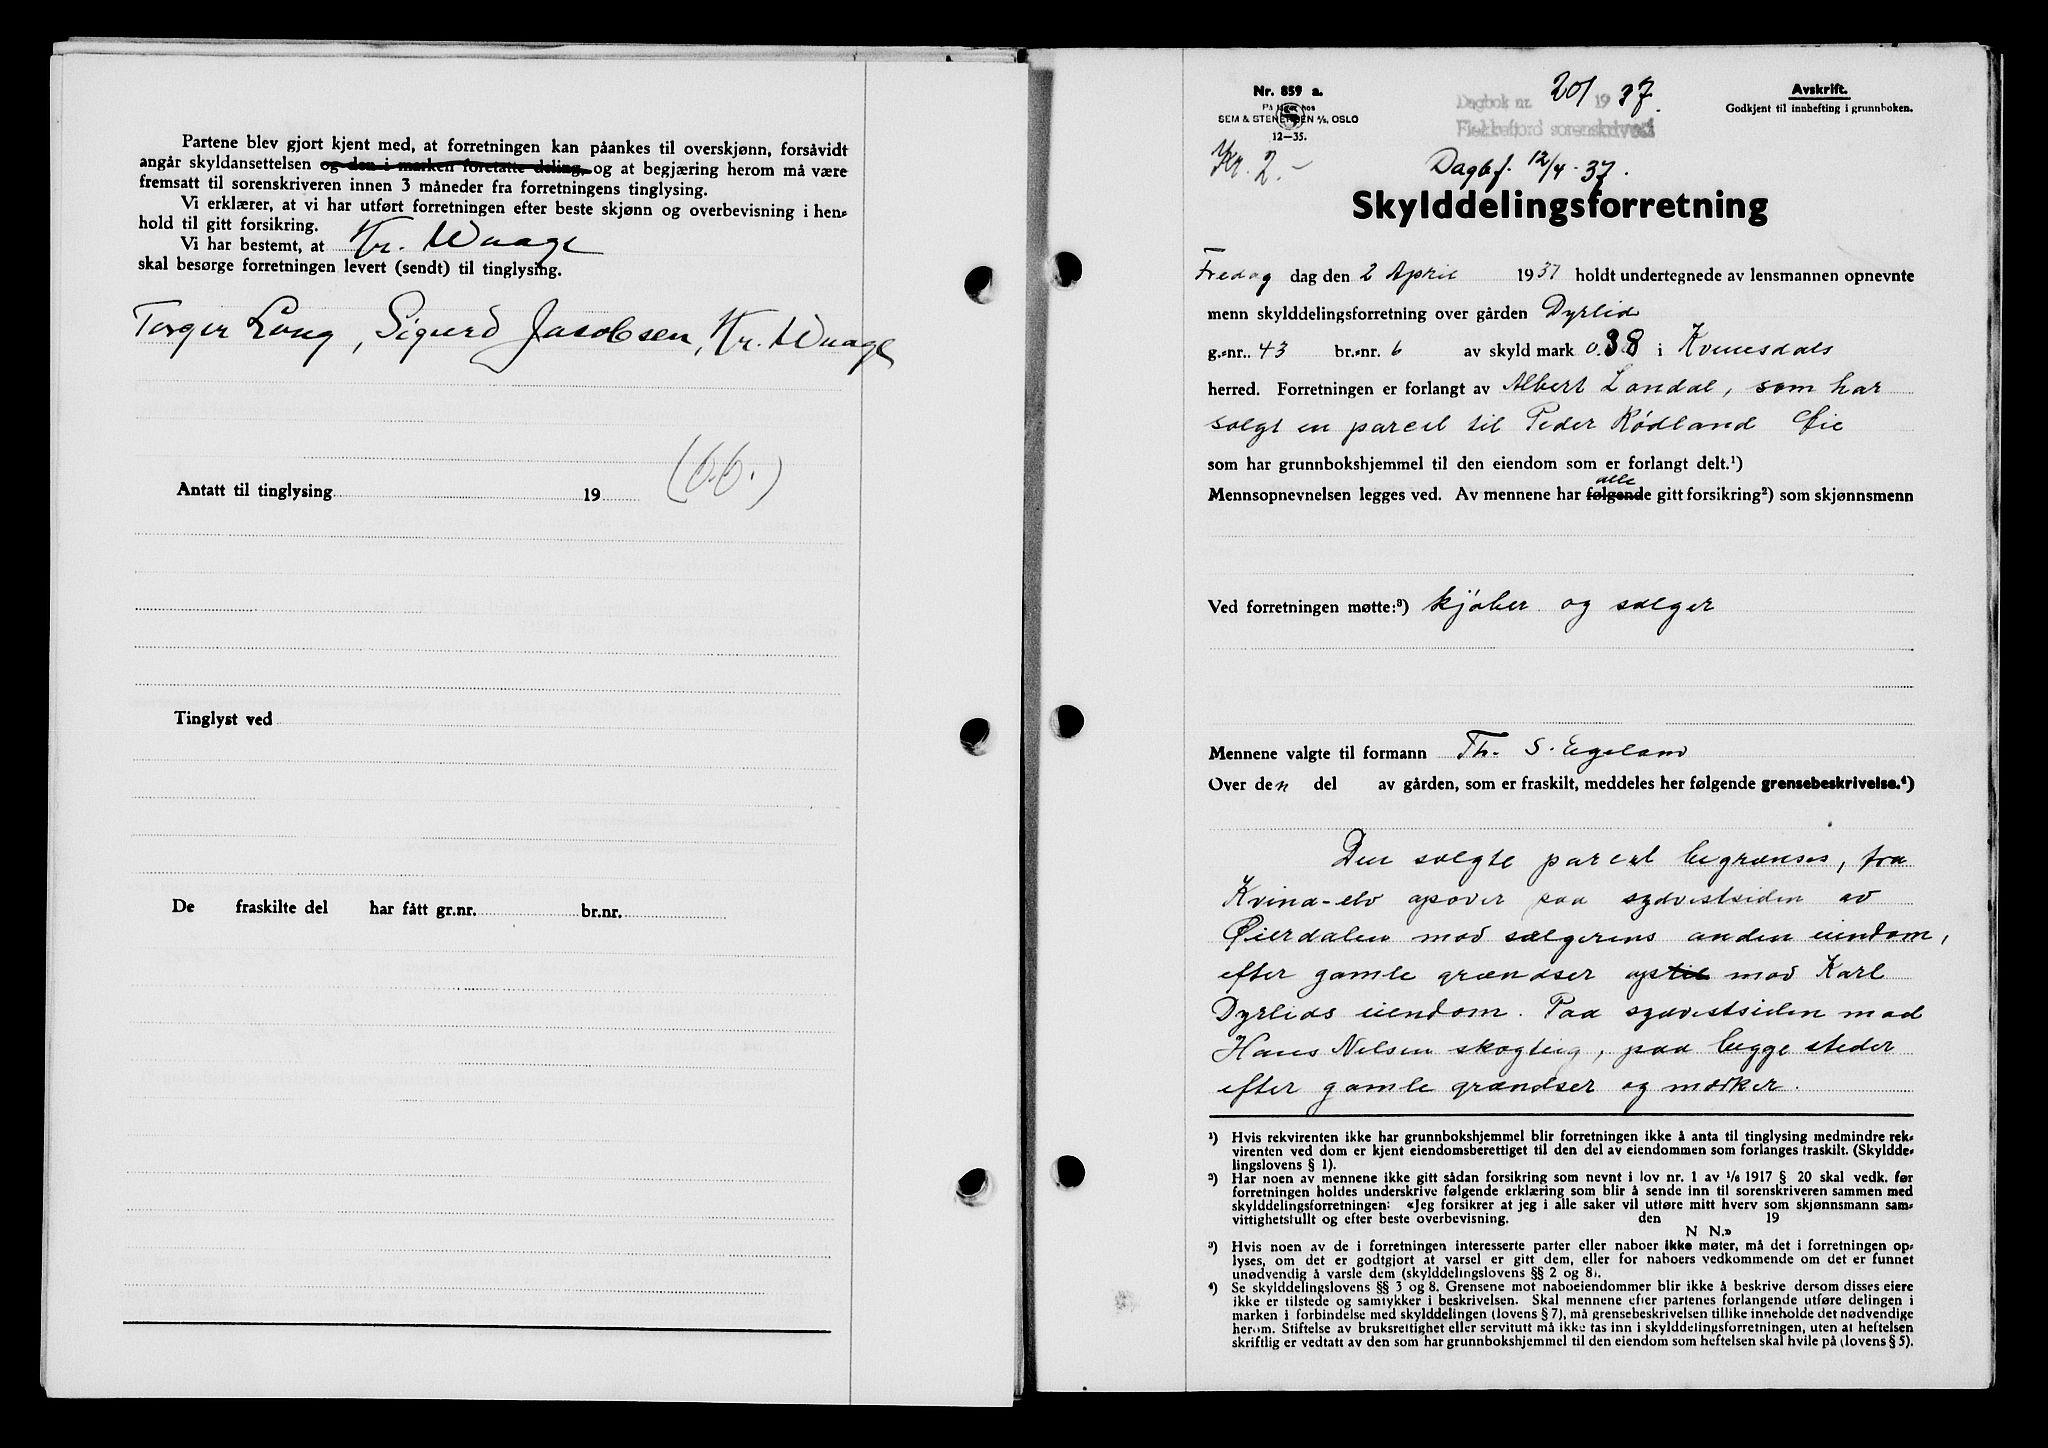 Partene blev gjort kjent med, at forretningen kan påankes til overskjønn, forsåvidt
angår skyldansettelsen og den i marken foretatte deling, og at begjæring herom må være
fremsatt til sorenskriveren innen 3 måneder fra forretningens tinglysing.
Vi erklærer, at vi har utført forretningen efter beste skjønn og overbevisning i hen-
hold til gitt forsikring.
Vi har bestemt, at Kr. Waage
skal besørge forretningen levert (sendt) til tinglysing.
Torger Long, Sigurd Jacobsen, Kr. Waage
(6.6.)
Antatt til tinglysing 19
Tinglyst ved
De fraskilte del har fått gr.nr. br.nr.
Nr. 859 a.
På lager hos
SEM & STENERSEN A/S, OSLO
12—35.
Kr. 2.-
Dagbok nr. 201 1937.
Flekkefjord sorenskriveri
Dagbf. 12/4-37.
Avskrift.
Godkjent til innhefting i grunnboken.
Skylddelingsforretning
Fredag dag den 2 April 1937 holdt undertegnede av lensmannen opnevnte
menn skylddelingsforretning over gården Dyrlid
g.-nr. 43 br.-nr. 6 av skyld mark 0.38 i Kvinesdals
herred. Forretningen er forlangt av Albert Londal, som har
solgt en parcel til Peder Rødland Øie
som har grunnbokshjemmel til den eiendom som er forlangt delt.¹)
alle
Mennsopnevnelsen legges ved. Av mennene har følgende gitt forsikring²) som skjønnsmenn
Ved forretningen møtte:³) kjøber og sælger
Mennene valgte til formann Th. S. Egeland
Over den del av gården, som er fraskilt, meddeles her følgende grensebeskrivelse.⁴)
Den solgte parcel begrænses, fra
Kvina-elv opover paa sydvestsiden av
Øierdalen mod sælgerens anden eiendom,
efter gamle grændser op til mod Karl
Dyrlids eiendom. Paa sydvestsiden mod
Hans Nelsen skogteig, paa begge steder
efter gamle grændser og merker.
¹) Hvis rekvirenten ikke har grunnbokshjemmel blir forretningen ikke å anta til tinglysing medmindre rek-
virenten ved dom er kjent eiendomsberettiget til den del av eiendommen som forlanges fraskilt. (Skyldde-
lingslovens § 1).
²) Har noen av mennene ikke gitt sådan forsikring som nevnt i lov nr. 1 av 1/6 1917 § 20 skal vedk. før
forretningen holdes underskrive følgende erklæring som blir å sende inn til sorenskriveren sammen med
skylddelingsforretningen: «Jeg forsikrer at jeg i alle saker vil utføre mitt hverv som skjønnsmann sam-
vittighetsfullt og efter beste overbevisning. den 19
N N.»
³) Hvis noen av de i forretningen interesserte parter eller naboer ikke møter, må det i forretningen op-
lyses, om det er godtgjort at varsel er gitt dem, eller for naboers vedkommende om det er funnet
unødvendig å varsle dem (skylddelingslovens §§ 2 og 8).
⁴) Se skylddelingslovens §§ 3 og 8. Grensene mot naboeiendommer blir ikke å beskrive dersom disses eiere
ikke er tilstede og samtykker i beskrivelsen. Skal mennene efter partenes forlangende utføre delingen i
marken i forbindelse med skylddelingen (lovens § 7), må grensebeskrivelsen tillike inneholde det nødvendige
herom. Stiftelse av bruksrettighet eller servitutt må ikke tas inn i skylddelingsforretningen, uten at heftelsen
skriftlig er vedtatt av den som har grunnbokshjemmel til den eiendom som heftelsen skal hvile på (lovens § 5).